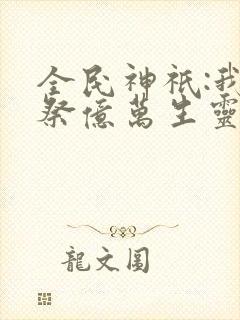 全民神祇:我
祭億萬生靈
龍文圓